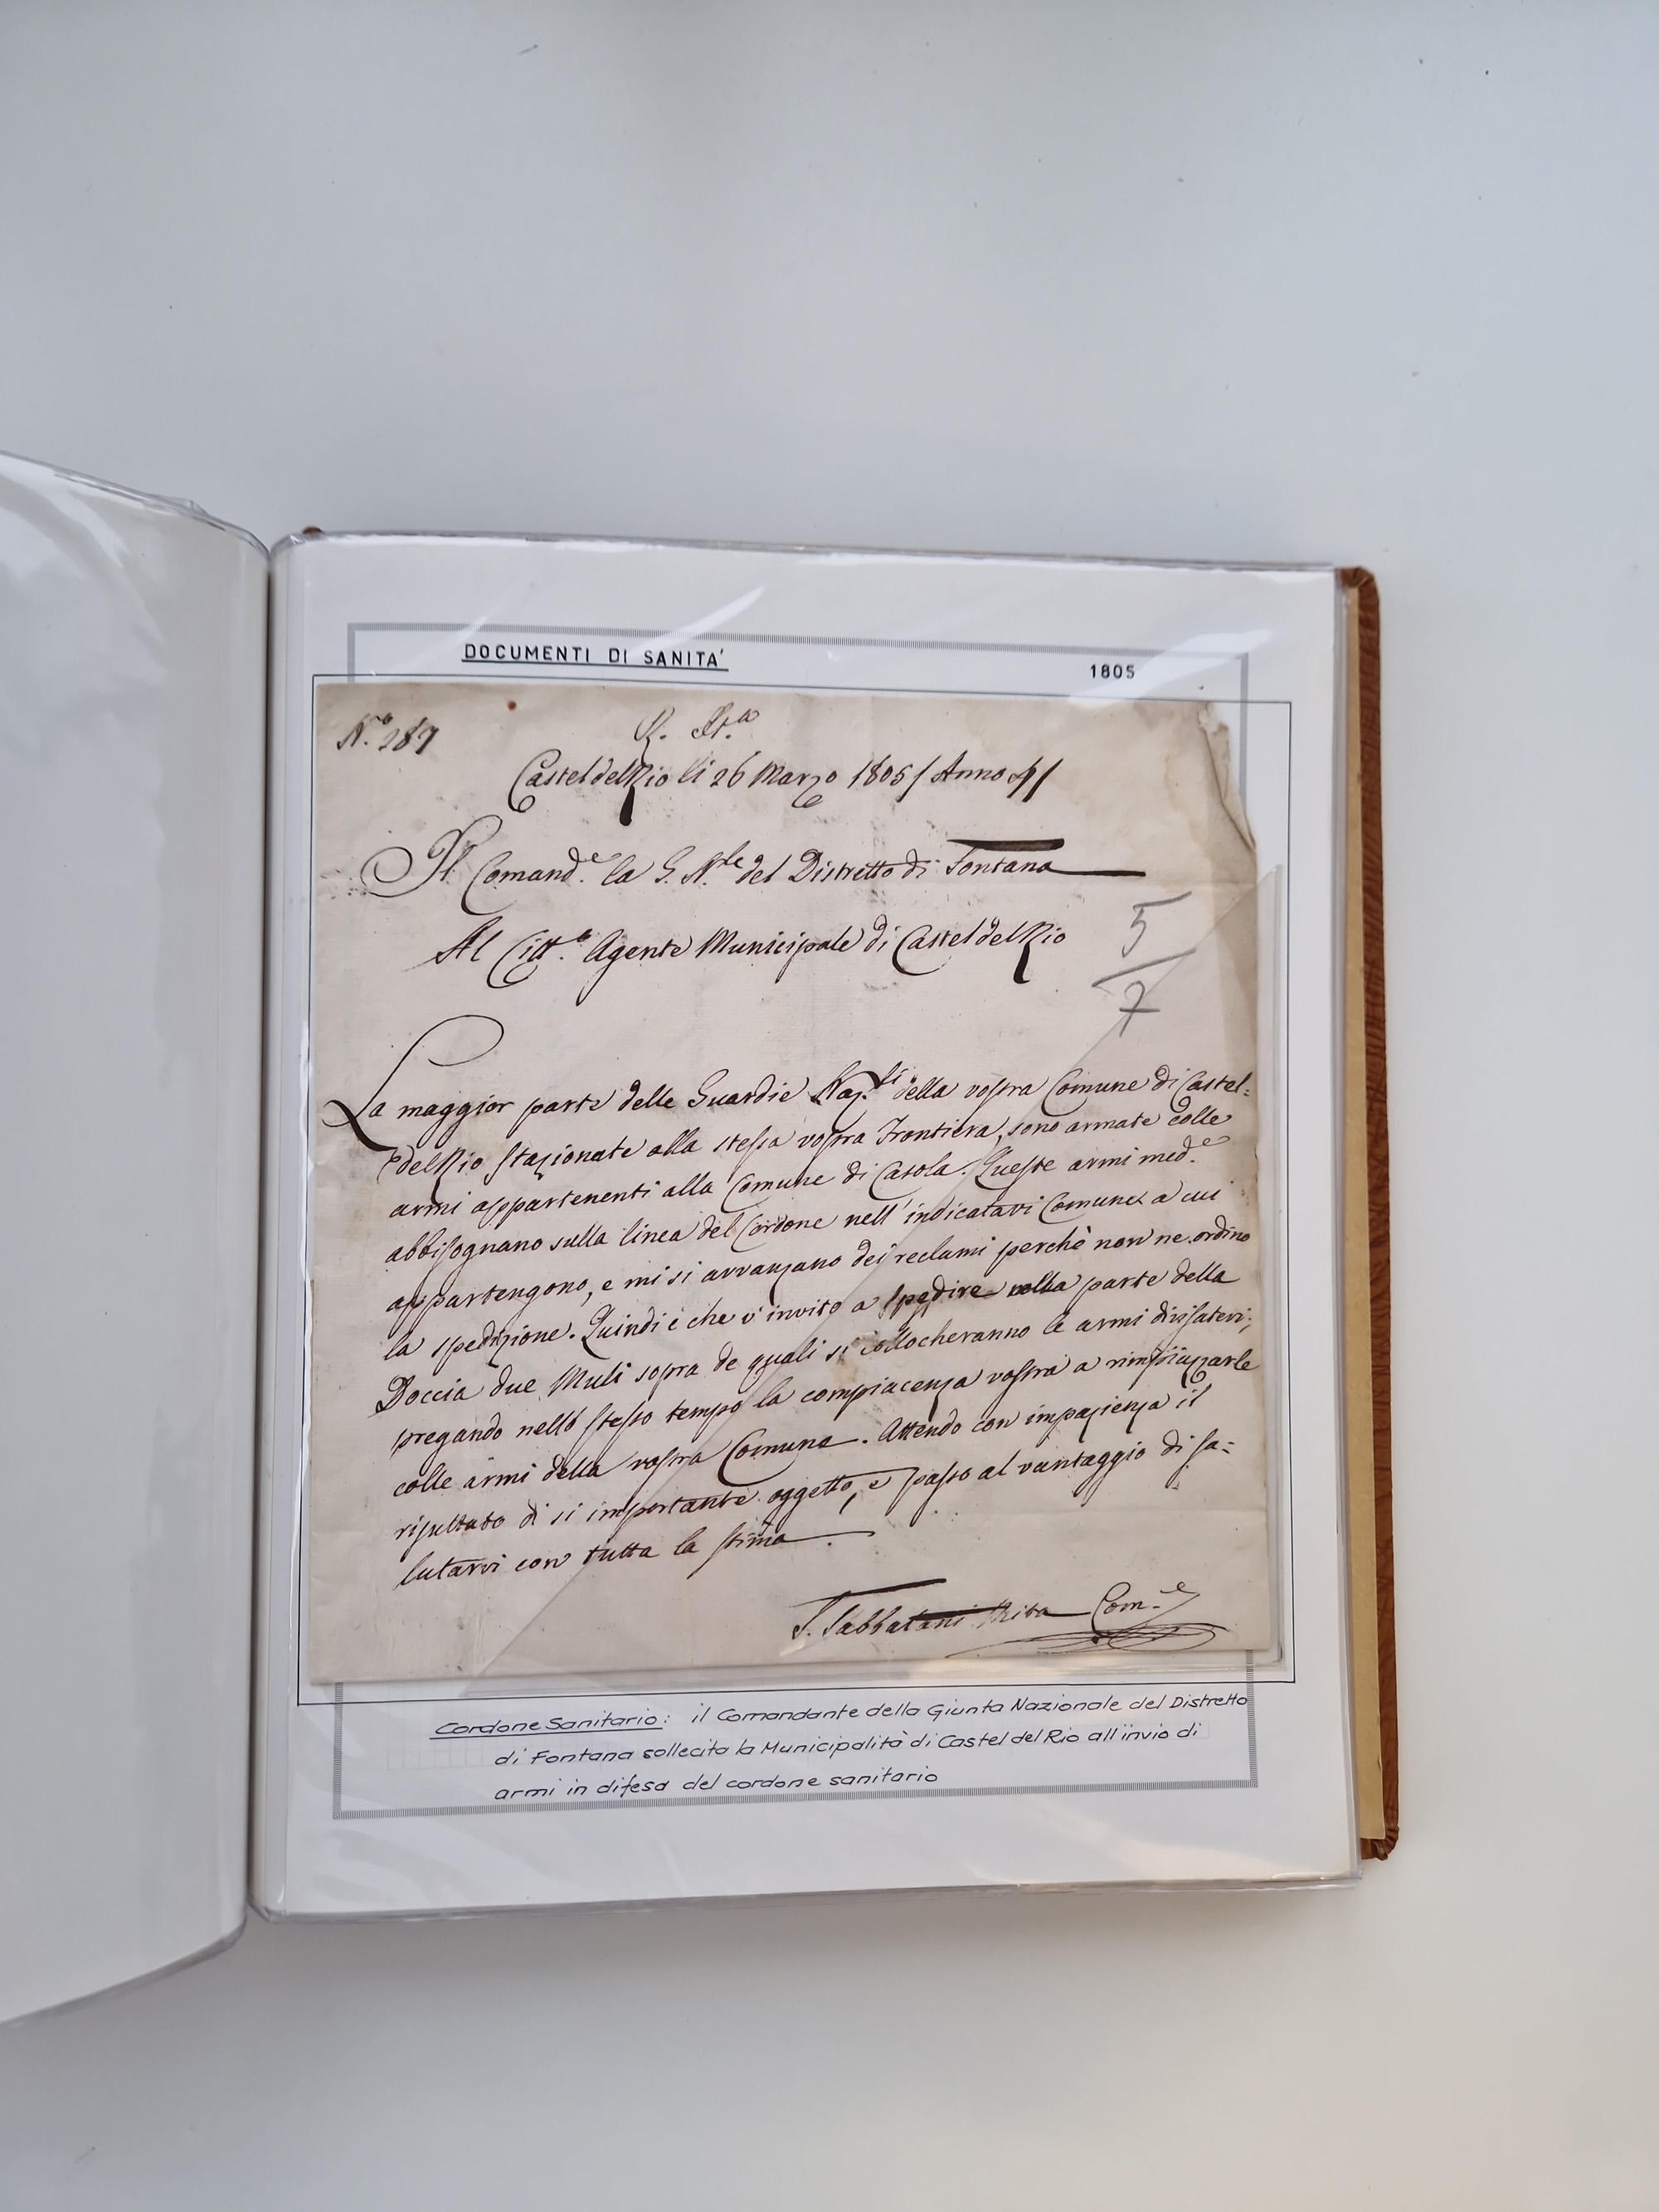 DOCUMENTI DI SANITA'
1805
N.º 287
R. It.ª
Castel del Rio li 26 Marzo 1805 / Anno 4/
Il Comand.e la G. N.le del Distretto di Fontana
Al Citt.º Agente Municipale di Castel del Rio
5/7
La maggior parte delle Guardie Naz.li della vostra Comune di Castel=
delRio stazionate alla stessa vostra Frontiera, sono armate colle
armi appartenenti alla Comune di Casola. Queste armi med.e
abbisognano sulla linea del Cordone nell'indicatavi Comune a cui
appartengono, e mi si avvanzano dei reclami perchè non ne ordino
la spedizione. Quindi è che v'invito a spedire nella parte della
Doccia due Muli sopra de quali si collocheranno le armi divisatevi;
pregando nello stesso tempo la compiacenza vostra a rimpiazzarle
colle armi della vostra Comune. Attendo con impazienza il
risultato di si importante oggetto, e passo al vantaggio di sa=
lutarvi con tutta la stima.
F. Sabbatani Com.e
Cordone Sanitario: il Comandante della Giunta Nazionale del Distretto
di Fontana sollecita la Municipalità di Castel del Rio all'invio di
armi in difesa del cordone sanitario